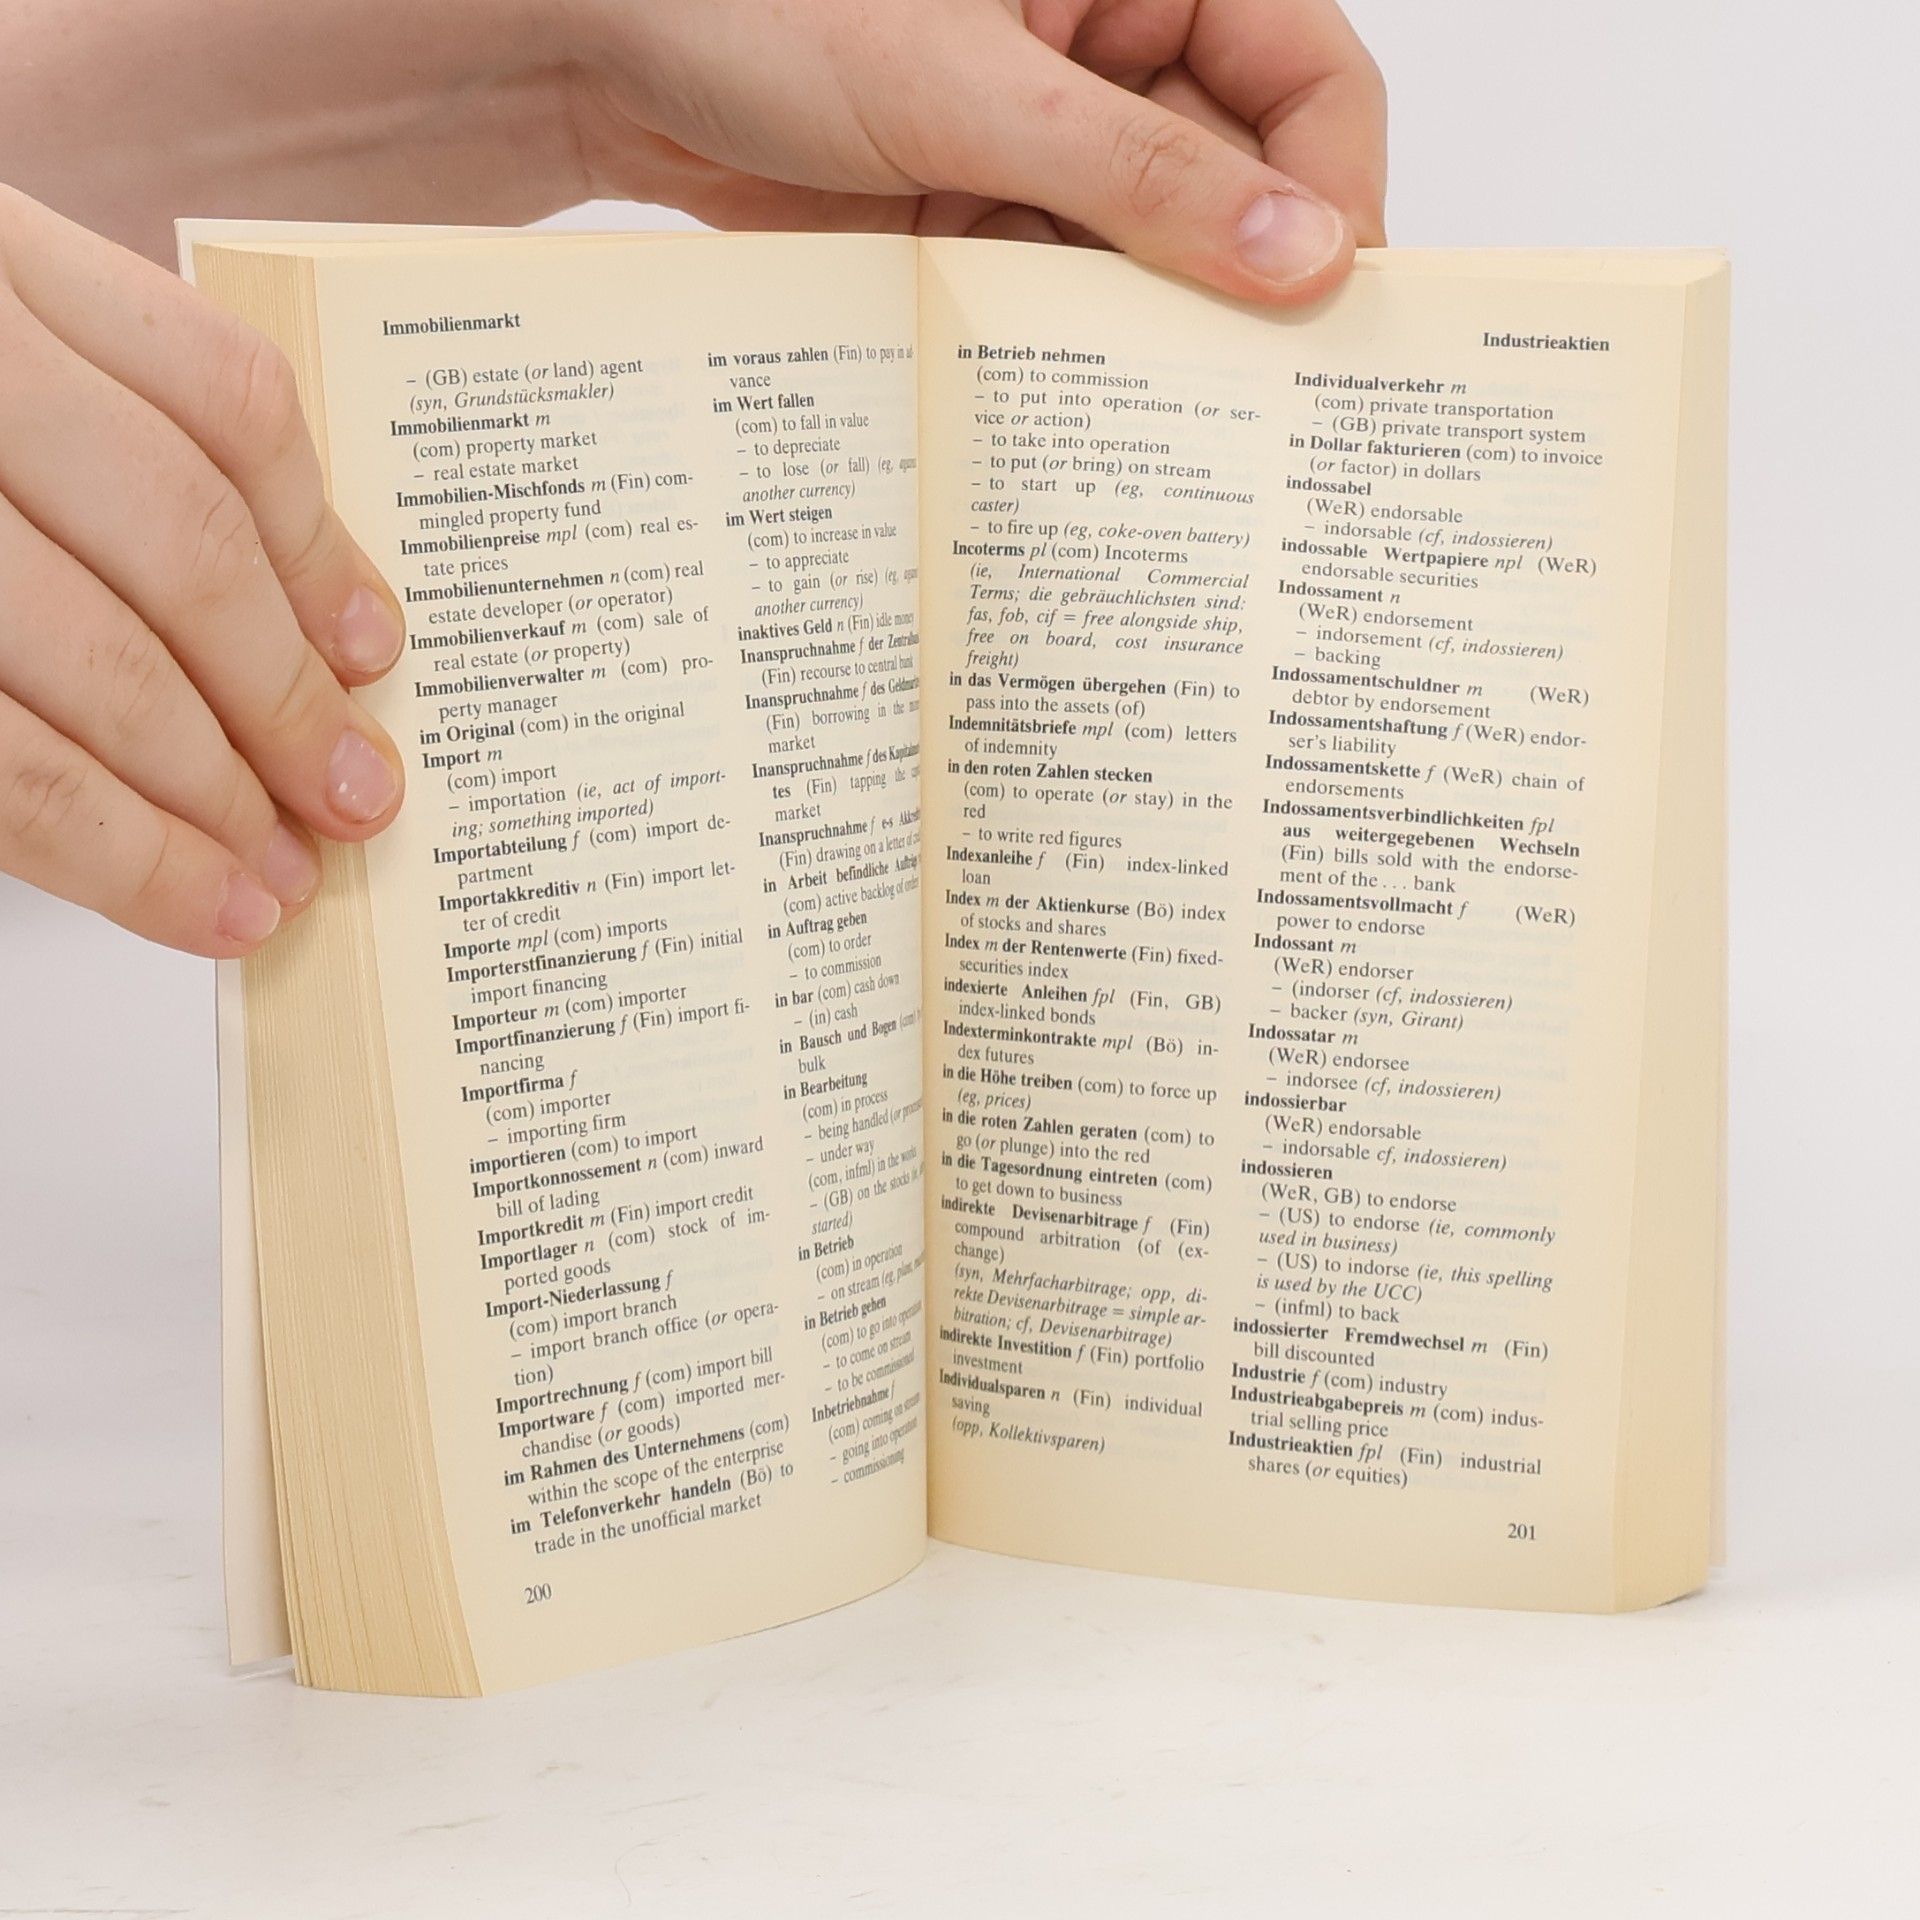 Immobilienmarkt
– (GB) estate (or land) agent
(syn, Grundstücksmakler)
Immobilienmarkt m
(com) property market
– real estate market
Immobilien-Mischfonds m (Fin) com-
mingled property fund
Immobilienpreise mpl (com) real es-
tate prices
Immobilienunternehmen n (com) real
estate developer (or operator)
Immobilienverkauf m (com) sale of
real estate (or property)
Immobilienverwalter m (com) pro-
perty manager
im Original (com) in the original
Import m
(com) import
– importation (ie, act of import-
ing; something imported)
Importabteilung f (com) import de-
partment
Importakkreditiv n (Fin) import let-
ter of credit
Importe mpl (com) imports
Importerstfinanzierung f (Fin) initial
import financing
Importeur m (com) importer
Importfinanzierung f (Fin) import fi-
nancing
Importfirma f
(com) importer
– importing firm
importieren (com) to import
Importkonnossement n (com) inward
bill of lading
Importkredit m (Fin) import credit
Importlager n (com) stock of im-
ported goods
Import-Niederlassung f
(com) import branch
– import branch office (or opera-
tion)
Importrechnung f (com) import bill
Importware f (com) imported mer-
chandise (or goods)
im Rahmen des Unternehmens (com)
within the scope of the enterprise
im Telefonverkehr handeln (Bö) to
trade in the unofficial market
im voraus zahlen (Fin) to pay in ad-
vance
im Wert fallen
(com) to fall in value
– to depreciate
– to lose (or fall) (eg,
another currency)
im Wert steigen
(com) to increase in value
– to appreciate
– to gain (or rise) (eg,
another currency)
inaktives Geld n (Fin) idle money
Inanspruchnahme f der
(Fin) recourse to central bank
Inanspruchnahme f des
(Fin) borrowing in the
market
Inanspruchnahme f des
tes (Fin) tapping the
market
Inanspruchnahme f e-s
(Fin) drawing on a letter of
in Arbeit befindliche Aufträge
(com) active backlog of orders
in Auftrag geben
(com) to order
– to commission
in bar (com) cash down
– (in) cash
in Bausch und Bogen (com)
bulk
in Bearbeitung
(com) in process
– being handled (or
– under way
(com, infml) in the works
– (GB) on the stocks
started)
in Betrieb
(com) in operation
– on stream (eg, plant,
in Betrieb gehen
(com) to go into operation
– to come on stream
– to be commissioned
Inbetriebnahme f
(com) coming on stream
– going into operation
– commissioning
200
Industrieaktien
in Betrieb nehmen
(com) to commission
– to put into operation (or ser-
vice or action)
– to take into operation
– to put (or bring) on stream
– to start up (eg, continuous
caster)
– to fire up (eg, coke-oven battery)
Incoterms pl (com) Incoterms
(ie, International Commercial
Terms; die gebräuchlichsten sind:
fas, fob, cif = free alongside ship,
free on board, cost insurance
freight)
in das Vermögen übergehen (Fin) to
pass into the assets (of)
Indemnitätsbriefe mpl (com) letters
of indemnity
in den roten Zahlen stecken
(com) to operate (or stay) in the
red
– to write red figures
Indexanleihe f (Fin) index-linked
loan
Index m der Aktienkurse (Bö) index
of stocks and shares
Index m der Rentenwerte (Fin) fixed-
securities index
indexierte Anleihen fpl (Fin, GB)
index-linked bonds
Indexterminkontrakte mpl (Bö) in-
dex futures
in die Höhe treiben (com) to force up
(eg, prices)
in die roten Zahlen geraten (com) to
go (or plunge) into the red
in die Tagesordnung eintreten (com)
to get down to business
indirekte Devisenarbitrage f (Fin)
compound arbitration (of (ex-
change)
(syn, Mehrfacharbitrage; opp, di-
rekte Devisenarbitrage = simple ar-
bitration; cf, Devisenarbitrage)
indirekte Investition f (Fin) portfolio
investment
Individualsparen n (Fin) individual
saving
(opp, Kollektivsparen)
Individualverkehr m
(com) private transportation
– (GB) private transport system
in Dollar fakturieren (com) to invoice
(or factor) in dollars
indossabel
(WeR) endorsable
– indorsable (cf, indossieren)
indossable Wertpapiere npl (WeR)
endorsable securities
Indossament n
(WeR) endorsement
– indorsement (cf, indossieren)
– backing
Indossamentschuldner m (WeR)
debtor by endorsement
Indossamentshaftung f (WeR) endor-
ser's liability
Indossamentskette f (WeR) chain of
endorsements
Indossamentsverbindlichkeiten fpl
aus weitergegebenen Wechseln
(Fin) bills sold with the endorse-
ment of the . . . bank
Indossamentsvollmacht f (WeR)
power to endorse
Indossant m
(WeR) endorser
– (indorser (cf, indossieren)
– backer (syn, Girant)
Indossatar m
(WeR) endorsee
– indorsee (cf, indossieren)
indossierbar
(WeR) endorsable
– indorsable cf, indossieren)
indossieren
(WeR, GB) to endorse
– (US) to endorse (ie, commonly
used in business)
– (US) to indorse (ie, this spelling
is used by the UCC)
– (infml) to back
indossierter Fremdwechsel m (Fin)
bill discounted
Industrie f (com) industry
Industrieabgabepreis m (com) indus-
trial selling price
Industrieaktien fpl (Fin) industrial
shares (or equities)
201